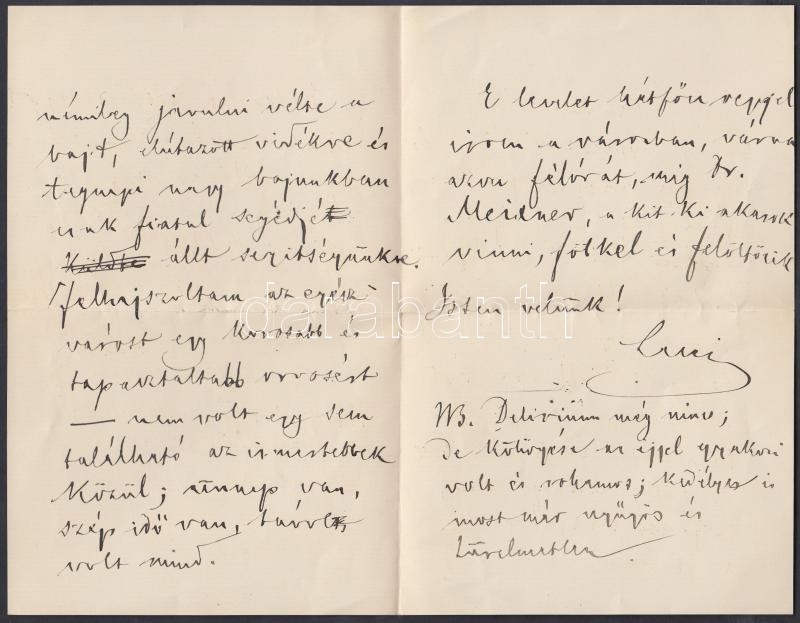 némileg javulni vélte a
bajt, elutazott vidékre és
tegnapi nagy bajunkban
csak fiatal segédjét
küldte állt segitségünkre.
Felhajszoltam az egész
várost egy korosabb és
tapasztaltabb orvosért
— nem volt egy sem
található az ismertebbek
közül; ünnep van,
szép idő van, távol
volt mind.
E levelet hétfőn reggel
irom a városban, várva
azon félórát, mig Dr.
Meixner, a kit ki akarok
vinni, fölkel és felöltözik
Isten velünk!
NB. Delirium még nincs;
de köhögése az éjjel gyakori
volt és rohamos; kedélye is
most már nyügös és
türelmetlen
darabanth